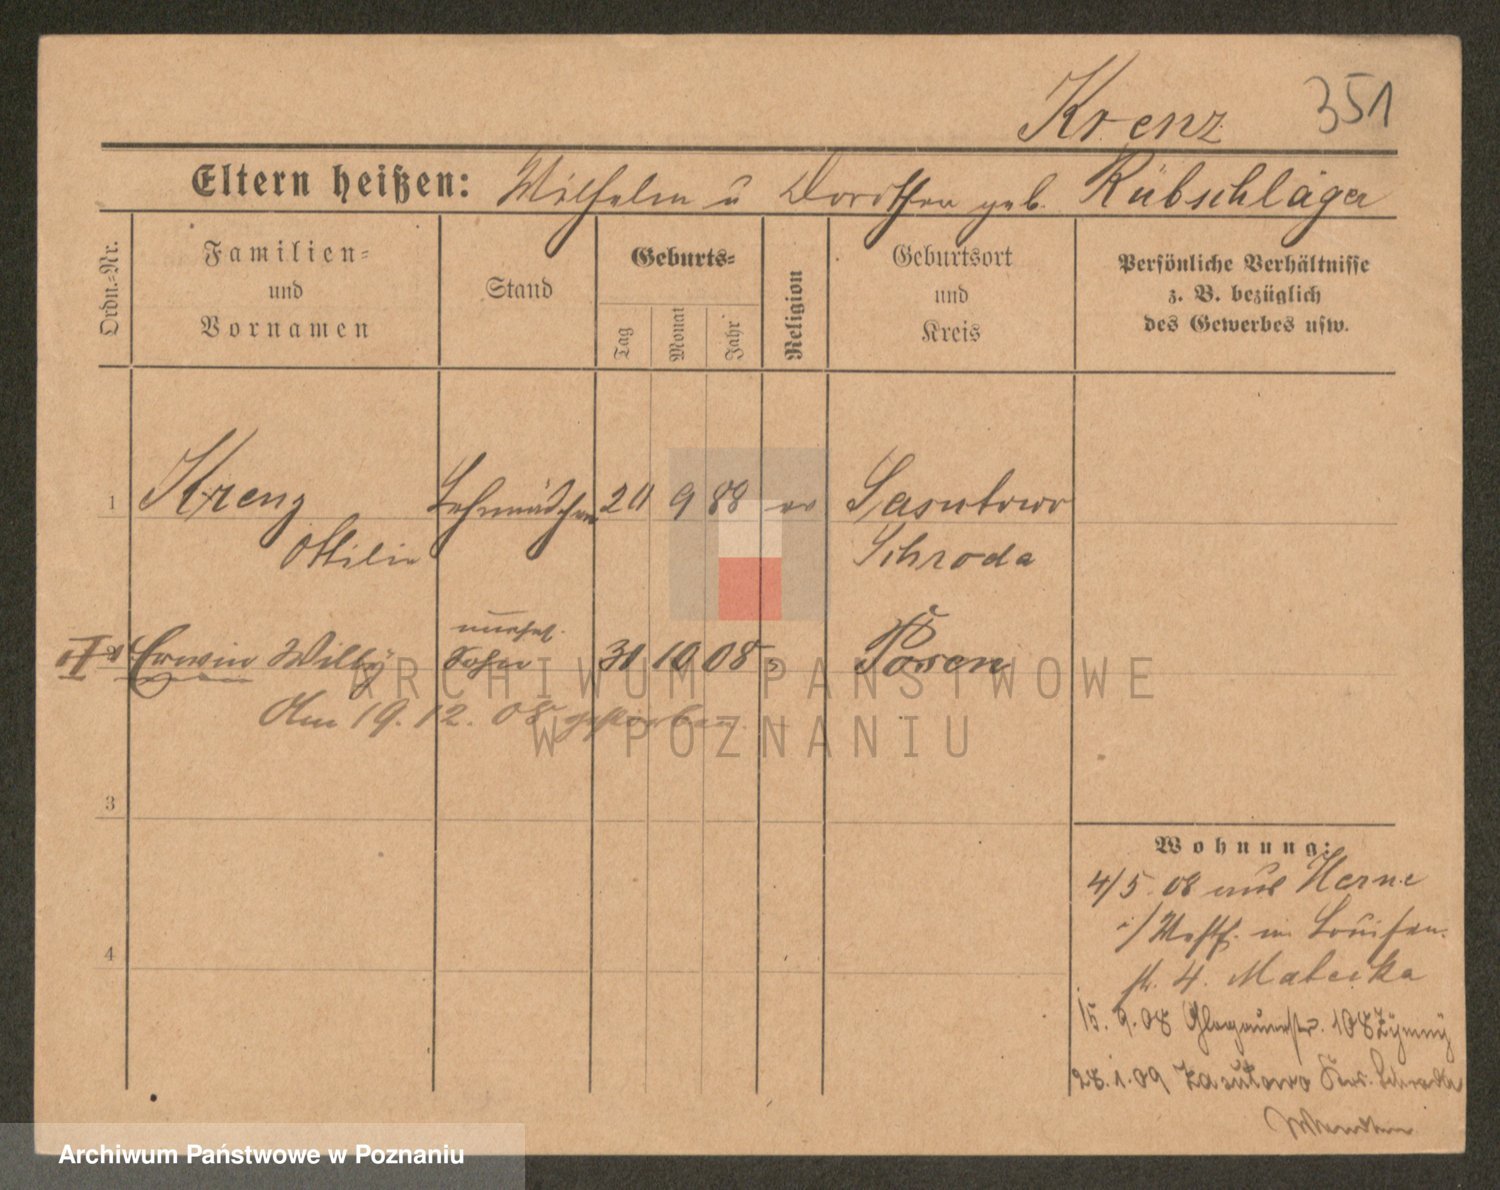 Krenz 351
Eltern heißen: Wilhelm u Dorothea geb. Rübschläger
Ordn.-Nr.
Familien-
und
Vornamen
Stand
Geburts-
Tag
Monat
Jahr
Religion
Geburtsort
und
Kreis
Persönliche Verhältnisse
z. B. bezüglich
des Gewerbes usw.
1 Krenz Lehrmädchen 20 9 88 ev Sasutowo
Ottilie Schroda
unehel.
2 Erwin Willy Sohn 31 10 08 Posen
Am 19. 12. 08 gestorben.
3
4
Wohnung:
4/5. 08 aus Herne
i/Westf. n. Louisen-
str. 4. Malecka
15. 9. 08 Glogauerstr. 108
28. 1. 09 Zasutowo Krs. Schroda
ARCHIWUM PAŃSTWOWE
W POZNANIU
Archiwum Państwowe w Poznaniu